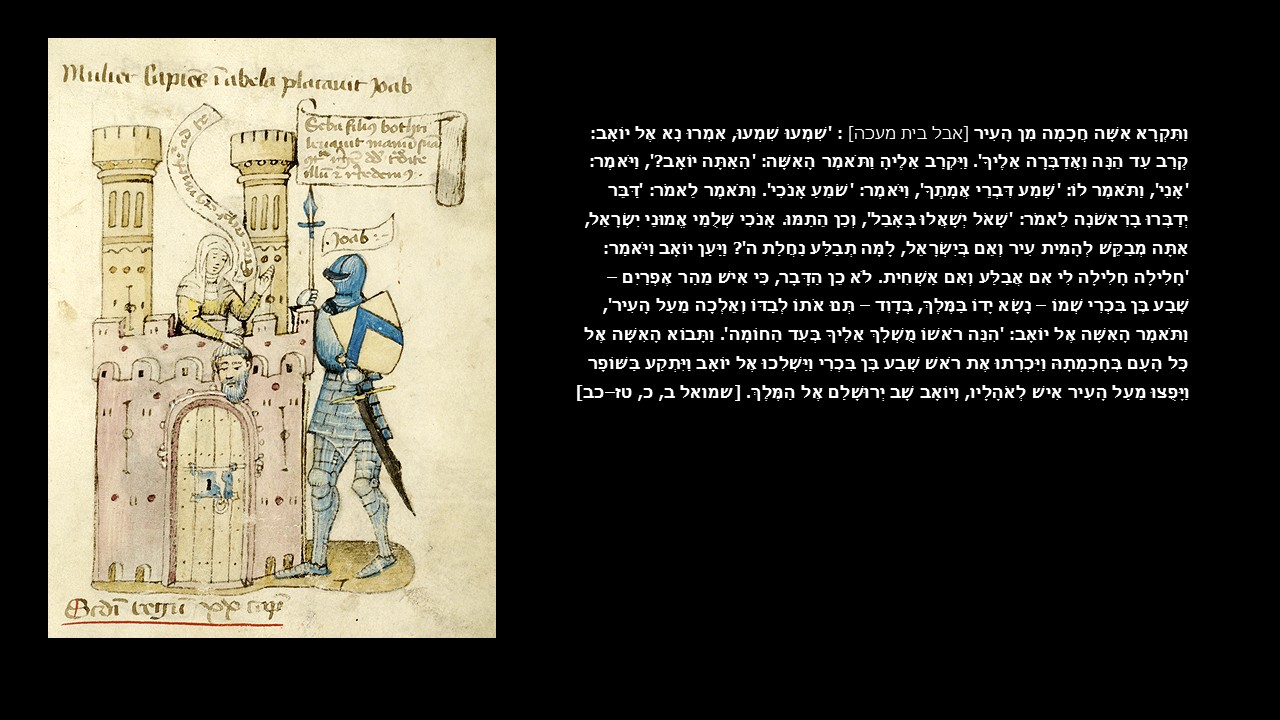 Mulier sapiēs ī abela placauit Joab
Seba filiꝯ bothri
leuauit manū suā
illū
Joab
וַתִּקְרָא אִשָּׁה חֲכָמָה מִן הָעִיר [אבל בית מעכה] : 'שִׁמְעוּ שִׁמְעוּ, אִמְרוּ נָא אֶל יוֹאָב:
קְרַב עַד הֵנָּה וַאֲדַבְּרָה אֵלֶיךָ'. וַיִּקְרַב אֵלֶיהָ וַתֹּאמֶר הָאִשָּׁה: 'הַאַתָּה יוֹאָב?', וַיֹּאמֶר:
'אָנִי', וַתֹּאמֶר לוֹ: 'שְׁמַע דִּבְרֵי אֲמָתֶךָ', וַיֹּאמֶר: 'שֹׁמֵעַ אָנֹכִי'. וַתֹּאמֶר לֵאמֹר: 'דַּבֵּר
יְדַבְּרוּ בָרִאשֹׁנָה לֵאמֹר: 'שָׁאֹל יְשָׁאֲלוּ בְּאָבֵל', וְכֵן הֵתַמּוּ. אָנֹכִי שְׁלֻמֵי אֱמוּנֵי יִשְׂרָאֵל,
אַתָּה מְבַקֵּשׁ לְהָמִית עִיר וְאֵם בְּיִשְׂרָאֵל, לָמָּה תְבַלַּע נַחֲלַת ה'? וַיַּעַן יוֹאָב וַיֹּאמַר:
'חָלִילָה חָלִילָה לִי אִם אֲבַלַּע וְאִם אַשְׁחִית. לֹא כֵן הַדָּבָר, כִּי אִישׁ מֵהַר אֶפְרַיִם –
שֶׁבַע בֶּן בִּכְרִי שְׁמוֹ – נָשָׂא יָדוֹ בַּמֶּלֶךְ, בְּדָוִד – תְּנוּ אֹתוֹ לְבַדּוֹ וְאֵלְכָה מֵעַל הָעִיר',
וַתֹּאמֶר הָאִשָּׁה אֶל יוֹאָב: 'הִנֵּה רֹאשׁוֹ מֻשְׁלָךְ אֵלֶיךָ בְּעַד הַחוֹמָה'. וַתָּבוֹא הָאִשָּׁה אֶל
כָּל הָעָם בְּחָכְמָתָהּ וַיִּכְרְתוּ אֶת רֹאשׁ שֶׁבַע בֶּן בִּכְרִי וַיַּשְׁלִכוּ אֶל יוֹאָב וַיִּתְקַע בַּשּׁוֹפָר
וַיָּפֻצוּ מֵעַל הָעִיר אִישׁ לְאֹהָלָיו, וְיוֹאָב שָׁב יְרוּשָׁלִַם אֶל הַמֶּלֶךְ. [שמואל ב, כ, טז–כב]